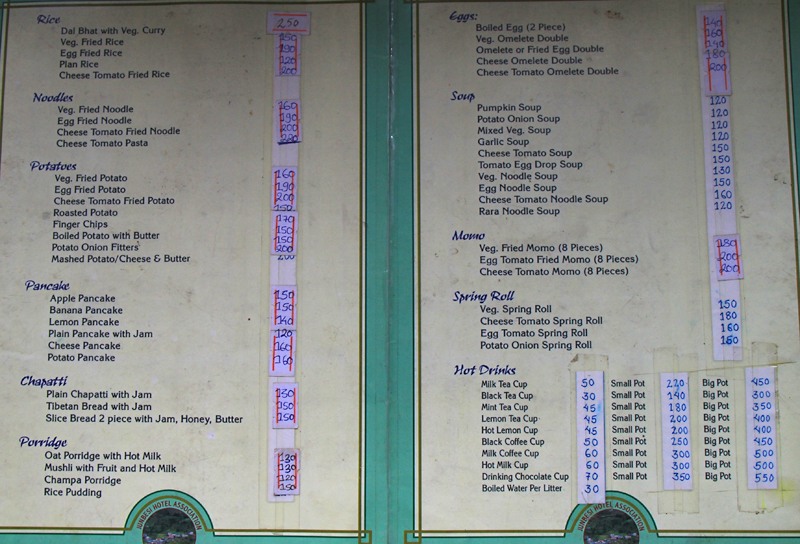 Rice
Dal Bhat with Veg. Curry 250
Veg. Fried Rice 150
Egg Fried Rice 190
Plan Rice 120
Cheese Tomato Fried Rice 200
Noodles
Veg. Fried Noodle 160
Egg Fried Noodle 190
Cheese Tomato Fried Noodle 200
Cheese Tomato Pasta
Potatoes
Veg. Fried Potato 160
Egg Fried Potato 190
Cheese Tomato Fried Potato 200
Roasted Potato 170
Finger Chips 150
Boiled Potato with Butter 150
Potato Onion Fitters 200
Mashed Potato/Cheese & Butter 200
Pancake
Apple Pancake 150
Banana Pancake 150
Lemon Pancake 140
Plain Pancake with Jam 120
Cheese Pancake 160
Potato Pancake 160
Chapatti
Plain Chapatti with Jam 130
Tibetan Bread with Jam 150
Slice Bread 2 piece with Jam, Honey, Butter 150
Porridge
Oat Porridge with Hot Milk 130
Mushli with Fruit and Hot Milk 130
Champa Porridge 120
Rice Pudding 150
JUNBESI HOTEL ASSOCIATION
Eggs:
Boiled Egg (2 Piece) 140
Veg. Omelete Double 160
Omelete or Fried Egg Double 140
Cheese Omelete Double 180
Cheese Tomato Omelete Double 200
Soup
Pumpkin Soup 120
Potato Onion Soup 120
Mixed Veg. Soup 120
Garlic Soup 120
Cheese Tomato Soup 150
Tomato Egg Drop Soup 150
Veg. Noodle Soup 130
Egg Noodle Soup 150
Cheese Tomato Noodle Soup 160
Rara Noodle Soup 120
Momo
Veg. Fried Momo (8 Pieces) 180
Egg Tomato Fried Momo (8 Pieces) 200
Cheese Tomato Momo (8 Pieces) 200
Spring Roll
Veg. Spring Roll 150
Cheese Tomato Spring Roll 180
Egg Tomato Spring Roll 160
Potato Onion Spring Roll
Hot Drinks
Milk Tea Cup 50 Small Pot 220 Big Pot 450
Black Tea Cup 30 Small Pot 140 Big Pot 300
Mint Tea Cup 45 Small Pot 180 Big Pot 350
Lemon Tea Cup 45 Small Pot 200 Big Pot 400
Hot Lemon Cup 45 Small Pot 200 Big Pot 400
Black Coffee Cup 50 Small Pot 250 Big Pot 450
Milk Coffee Cup 60 Small Pot 300 Big Pot 500
Hot Milk Cup 60 Small Pot 300 Big Pot 500
Drinking Chocolate Cup 70 Small Pot 350 Big Pot 550
Boiled Water Per Litter 30
JUNBESI HOTEL ASSOCIATION